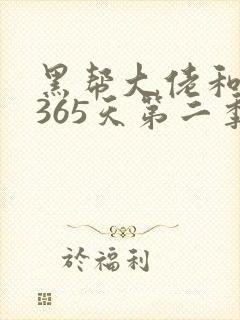 黑帮大佬和
365天第二季
於福利